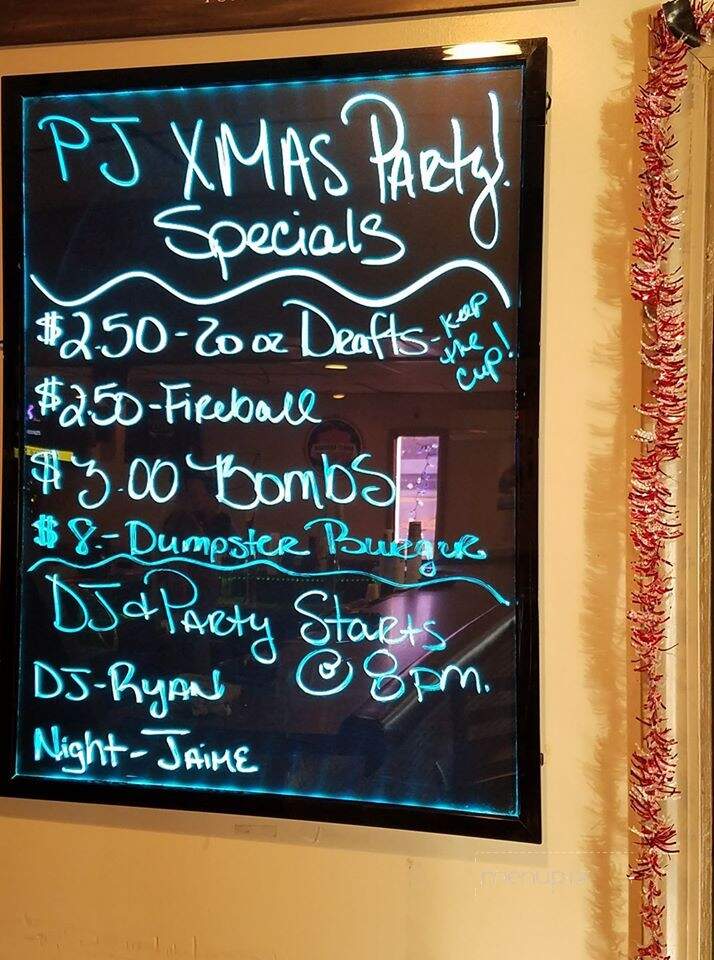 PJ XMAS PARTY!
Specials
$2.50-20 oz Drafts- Keep the cup!
$2.50-Fireball
$3.00 Bombs
$8.- Dumpster Burger
DJ & PARTY Starts
@ 8pm.
DJ-RYAN
Night-JAIME
menupix